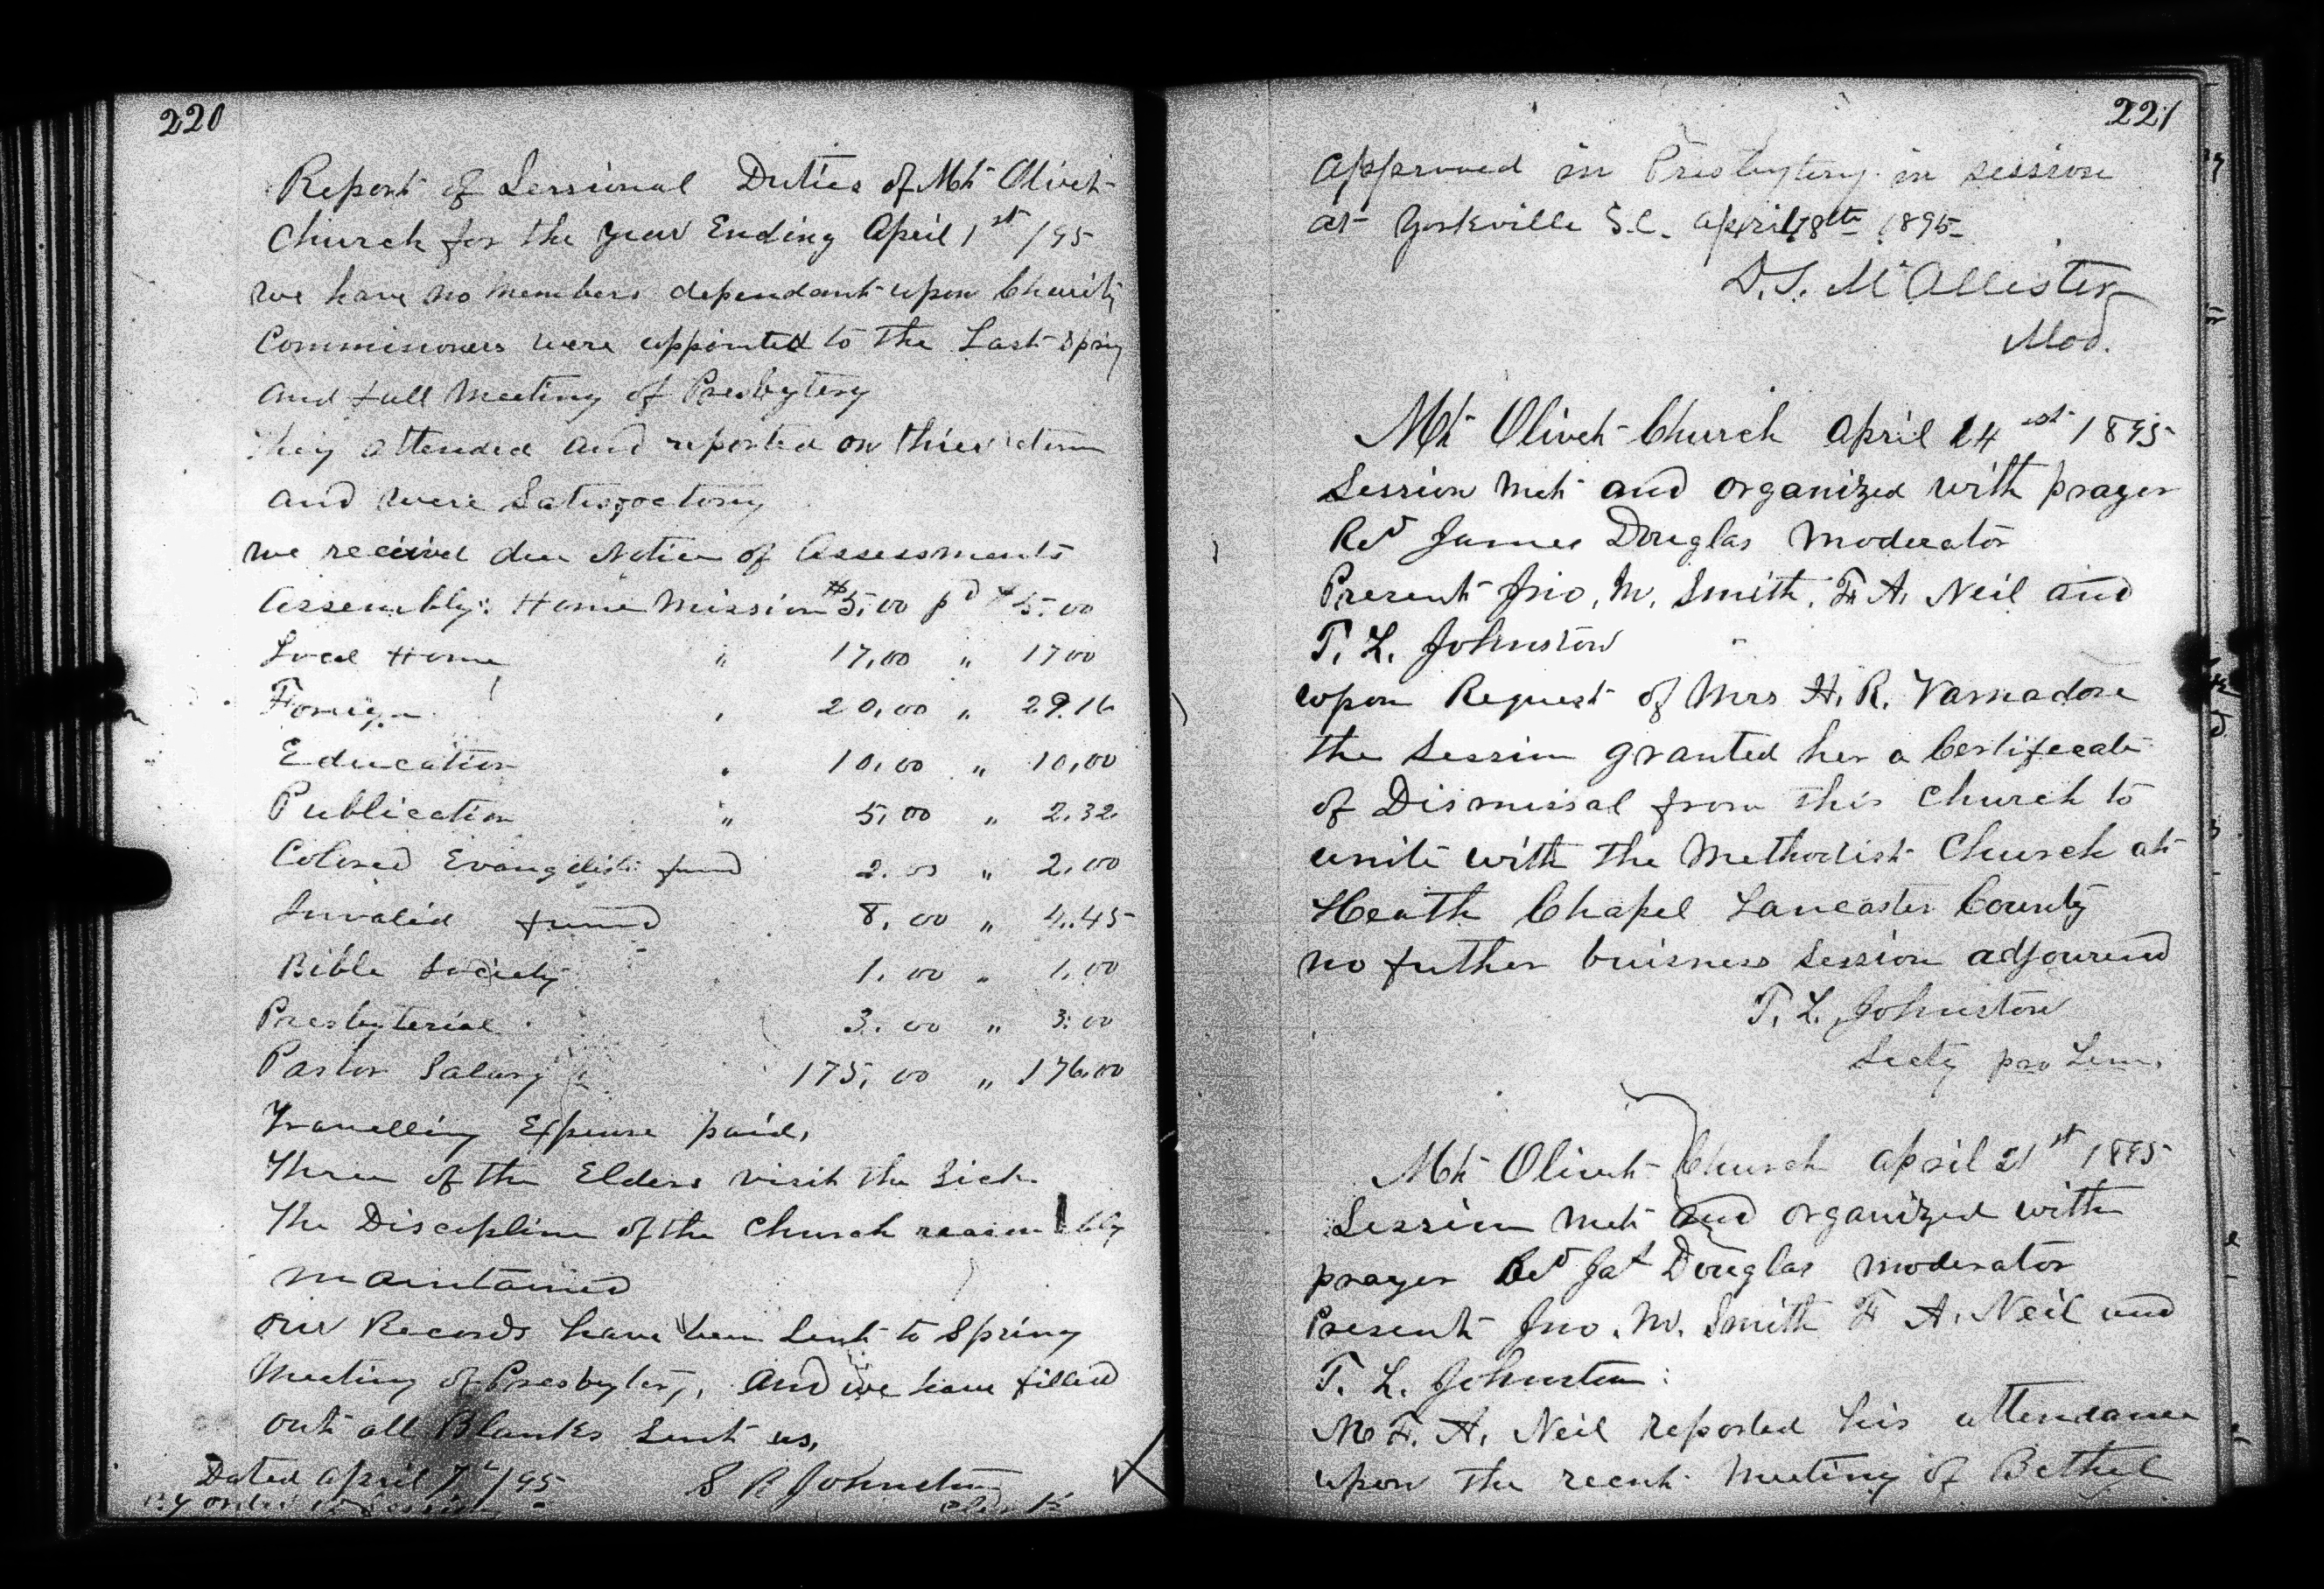 220
Report of Sessional Duties of Mt Olivet
Church for the year Ending April 1st /95
we have no members dependant upon Charity
Commissioners were appointed to the Last Spring
and fall Meeting of Presbytery
They attended and reported on thier return
and were Satisfactory
we received due Notice of Assessments
Assembly: Home Mission $5.00 pd $5.00
Local Home " 17.00 " 17 00
Foreign " 20.00 " 29.16
Education " 10.00 " 10.00
Publication " 5.00 " 2.32
Colored Evangelistic fund 2.00 " 2.00
Invalid fund 8.00 " 4.45
Bible Society 1.00 " 1.00
Presbyterial 3.00 " 3.00
Pastor Salary 175.00 " 176.00
Travelling Expense paid.
Three of the Elders visit the Sick
The Discipline of the Church reason bly
maintained
our Records have been Sent to Spring
Meeting of Presbytery, and we have filled
out all Blanks Sent us,
Dated April 7th/95 S R Johnston
By order of Session Clerk
221
Approved in Presbytery in session
at Yorkville S.C. April 18th 1895
D.S. McAllister
Mod.
Mt Olivet Church April 14 st 1895
Session Met and organized with prayer
Revd James Douglas Moderator
Present Jno. M. Smith, F. A. Neil and
T. L. Johnston
upon Request of Mrs H. R. Varnadore
the Session granted her a Certificate
of Dismissal from this Church to
unite with the Methodist Church at
Heath Chapel Lancaster County
no futher buisness Session adjourned
T. L. Johnston
Secty pro Tem.
Mt Olivet Church April 21st 1895
Session Met and organized with
prayer Revd Jas Douglas moderator
Present Jno. M. Smith F A. Neil and
T. L. Johnston
Mr F. A. Neil reported his attendance
upon the recent Meeting of Bethel